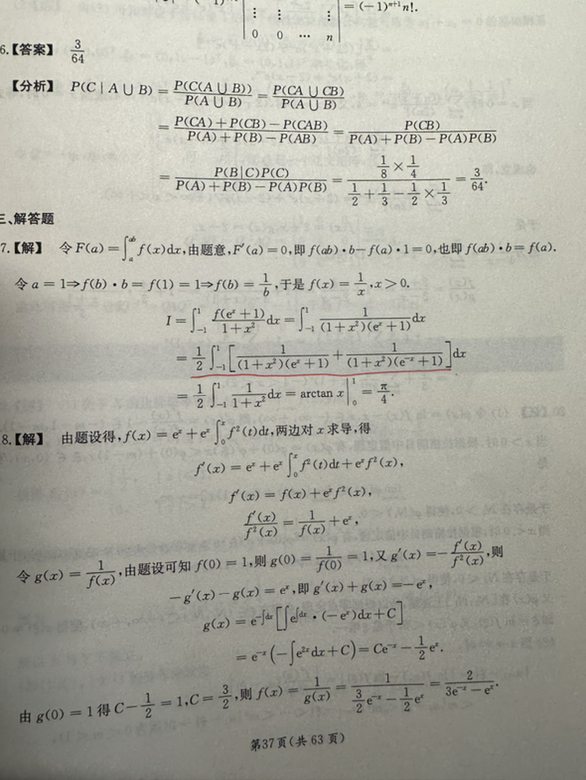 ⋮ ⋮ ⋮ = (-1)ⁿ⁺¹n!.
0 0 ⋯ n
6.【答案】 3/64
【分析】 P(C | A∪B) = P(C(A∪B))/P(A∪B) = P(CA∪CB)/P(A∪B)
= (P(CA)+P(CB)−P(CAB))/(P(A)+P(B)−P(AB)) = P(CB)/(P(A)+P(B)−P(A)P(B))
= P(B|C)P(C)/(P(A)+P(B)−P(A)P(B)) = (1/8×1/4)/(1/2+1/3−1/2×1/3) = 3/64.
三、解答题
7.【解】 令 F(a)=∫ₐᵃᵇ f(x)dx,由题意,F′(a)=0,即 f(ab)·b−f(a)·1=0,也即 f(ab)·b=f(a).
令 a=1⇒f(b)·b=f(1)=1⇒f(b)=1/b,于是 f(x)=1/x,x>0.
I=∫₋₁¹ f(eˣ+1)/(1+x²) dx=∫₋₁¹ 1/((1+x²)(eˣ+1)) dx
=1/2 ∫₋₁¹ [1/((1+x²)(eˣ+1)) + 1/((1+x²)(e⁻ˣ+1))] dx
=1/2 ∫₋₁¹ 1/(1+x²) dx=arctan x|₀¹=π/4.
8.【解】 由题设得,f(x)=eˣ+eˣ∫₀ˣ f²(t)dt,两边对 x 求导,得
f′(x)=eˣ+eˣ∫₀ˣ f²(t)dt+eˣf²(x),
f′(x)=f(x)+eˣf²(x),
f′(x)/f²(x)=1/f(x)+eˣ,
令 g(x)=1/f(x),由题设可知 f(0)=1,则 g(0)=1/f(0)=1,又 g′(x)=−f′(x)/f²(x),则
−g′(x)−g(x)=eˣ,即 g′(x)+g(x)=−eˣ,
g(x)=e^(−∫dx)[∫e^(∫dx)·(−eˣ)dx+C]
=e⁻ˣ(−∫e²ˣdx+C)=Ce⁻ˣ−1/2 eˣ.
由 g(0)=1 得 C−1/2=1,C=3/2,则 f(x)=1/g(x)=1/(3/2 e⁻ˣ−1/2 eˣ)=2/(3e⁻ˣ−eˣ).
第37页(共 63 页)